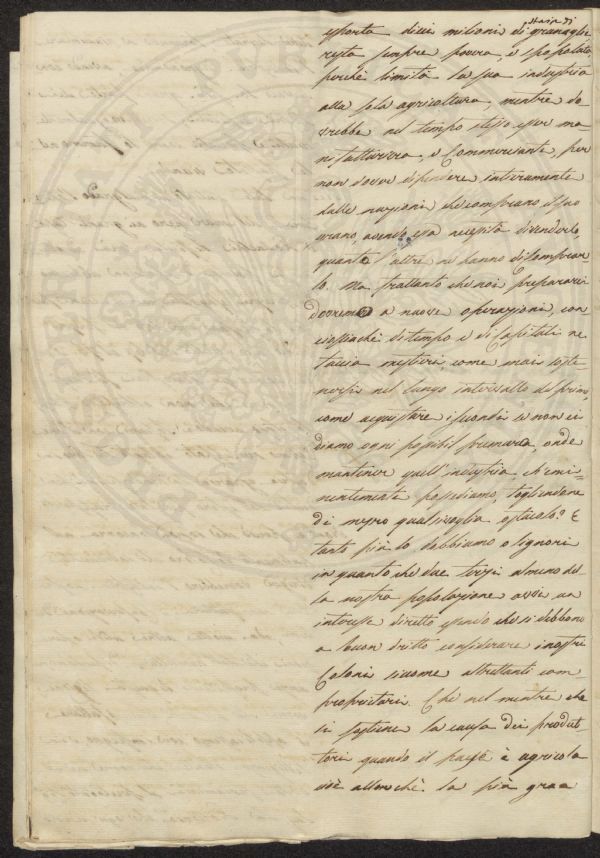 staja di
esporta dieci milioni di granaglie
resta sempre povera, e spopolata
perchè limita la sua industria
alla sola agricoltura, mentre do
vrebbe nel tempo stesso esser ma
nifatturiera, e Commerciante, per
non dover dipendere interamente
dalle nazioni che comprano il suo
grano, avendo essa necessità di venderlo,
quanto l'altre ne hanno di comprar
lo. Ma frattanto che noi preparar
dovremo a nuove operazioni, con
ciossiachè di tempo e di Capitali ne
faccia mestieri, come mai soste
nersi nel lungo intervallo dei primi,
come acquistare i secondi se non ci
diamo ogni possibil premura, onde
mantener quell'industria, ch'emi=
nentemente possediamo, togliendone
di mezzo qualsivoglia ostacolo? E
tanto più lo dobbiamo o Signori
in quanto che due terzi almeno del
la nostra popolazione avvi un
interesse diretto essendo che si debbono
a buon dritto considerare i nostri
Coloni siccome altrettanti com
proprietari. Chè nel mentre che
si sostiene la causa dei produt
tori quando il paese è agricola
cioè allorchè la più gran